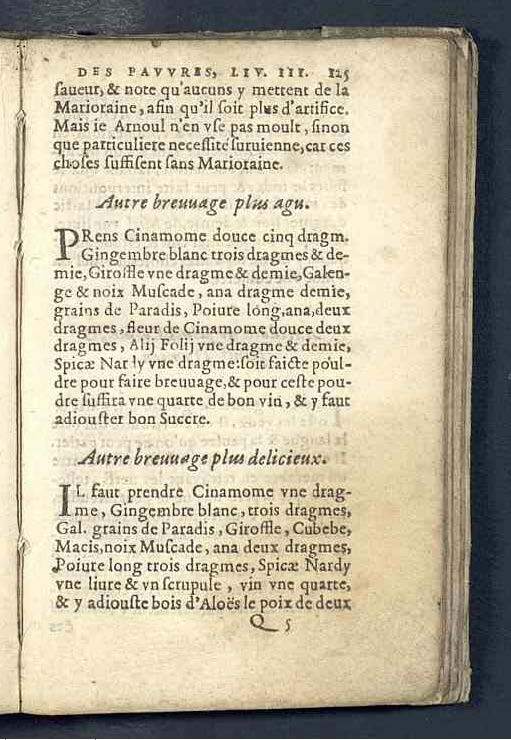 DES PAVVRES, LIV. III. 125
ſaueur, & note qu'aucuns y mettent de la
Marioraine, afin qu'il ſoit plus d'artifice.
Mais ie Arnoul n'en vſe pas moult, ſinon
que particuliere neceſſité ſuruienne, car ces
choſes ſuffiſent ſans Marioraine.
Autre breuuage plus agu.
PRens Cinamome douce cinq dragm.
Gingembre blanc trois dragmes & de-
mie, Giroffle vne dragme & demie, Galen-
ge & noix Muſcade, ana dragme demie,
grains de Paradis, Poiure long, ana, deux
dragmes, fleur de Cinamome douce deux
dragmes, Alij Folij vne dragme & demie,
Spicæ Nardy vne dragme: ſoit faicte poul-
dre pour faire breuuage, & pour ceſte pou-
dre ſuffira vne quarte de bon vin, & y faut
adiouſter bon Succre.
Autre breuuage plus delicieux.
IL faut prendre Cinamome vne drag-
me, Gingembre blanc, trois dragmes,
Gal. grains de Paradis, Giroffle, Cubebe,
Macis, noix Muſcade, ana deux dragmes,
Poiure long trois dragmes, Spicæ Nardy
vne liure & vn ſcrupule, vin vne quarte,
& y adiouſte bois d'Aloës le poix de deux
Q 5